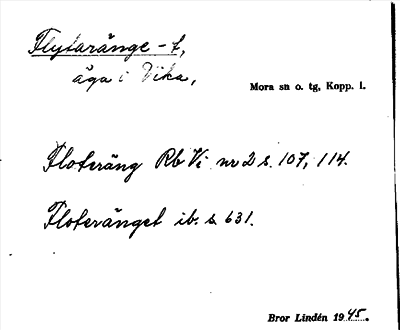 Flytaränge -t,
äga i Vika,
Mora sn o. tg, Kopp. l.
Floteräng Rb Vi nr 2 s. 107, 114.
Floteränget ib. s. 631.
Bror Lindén 1945.